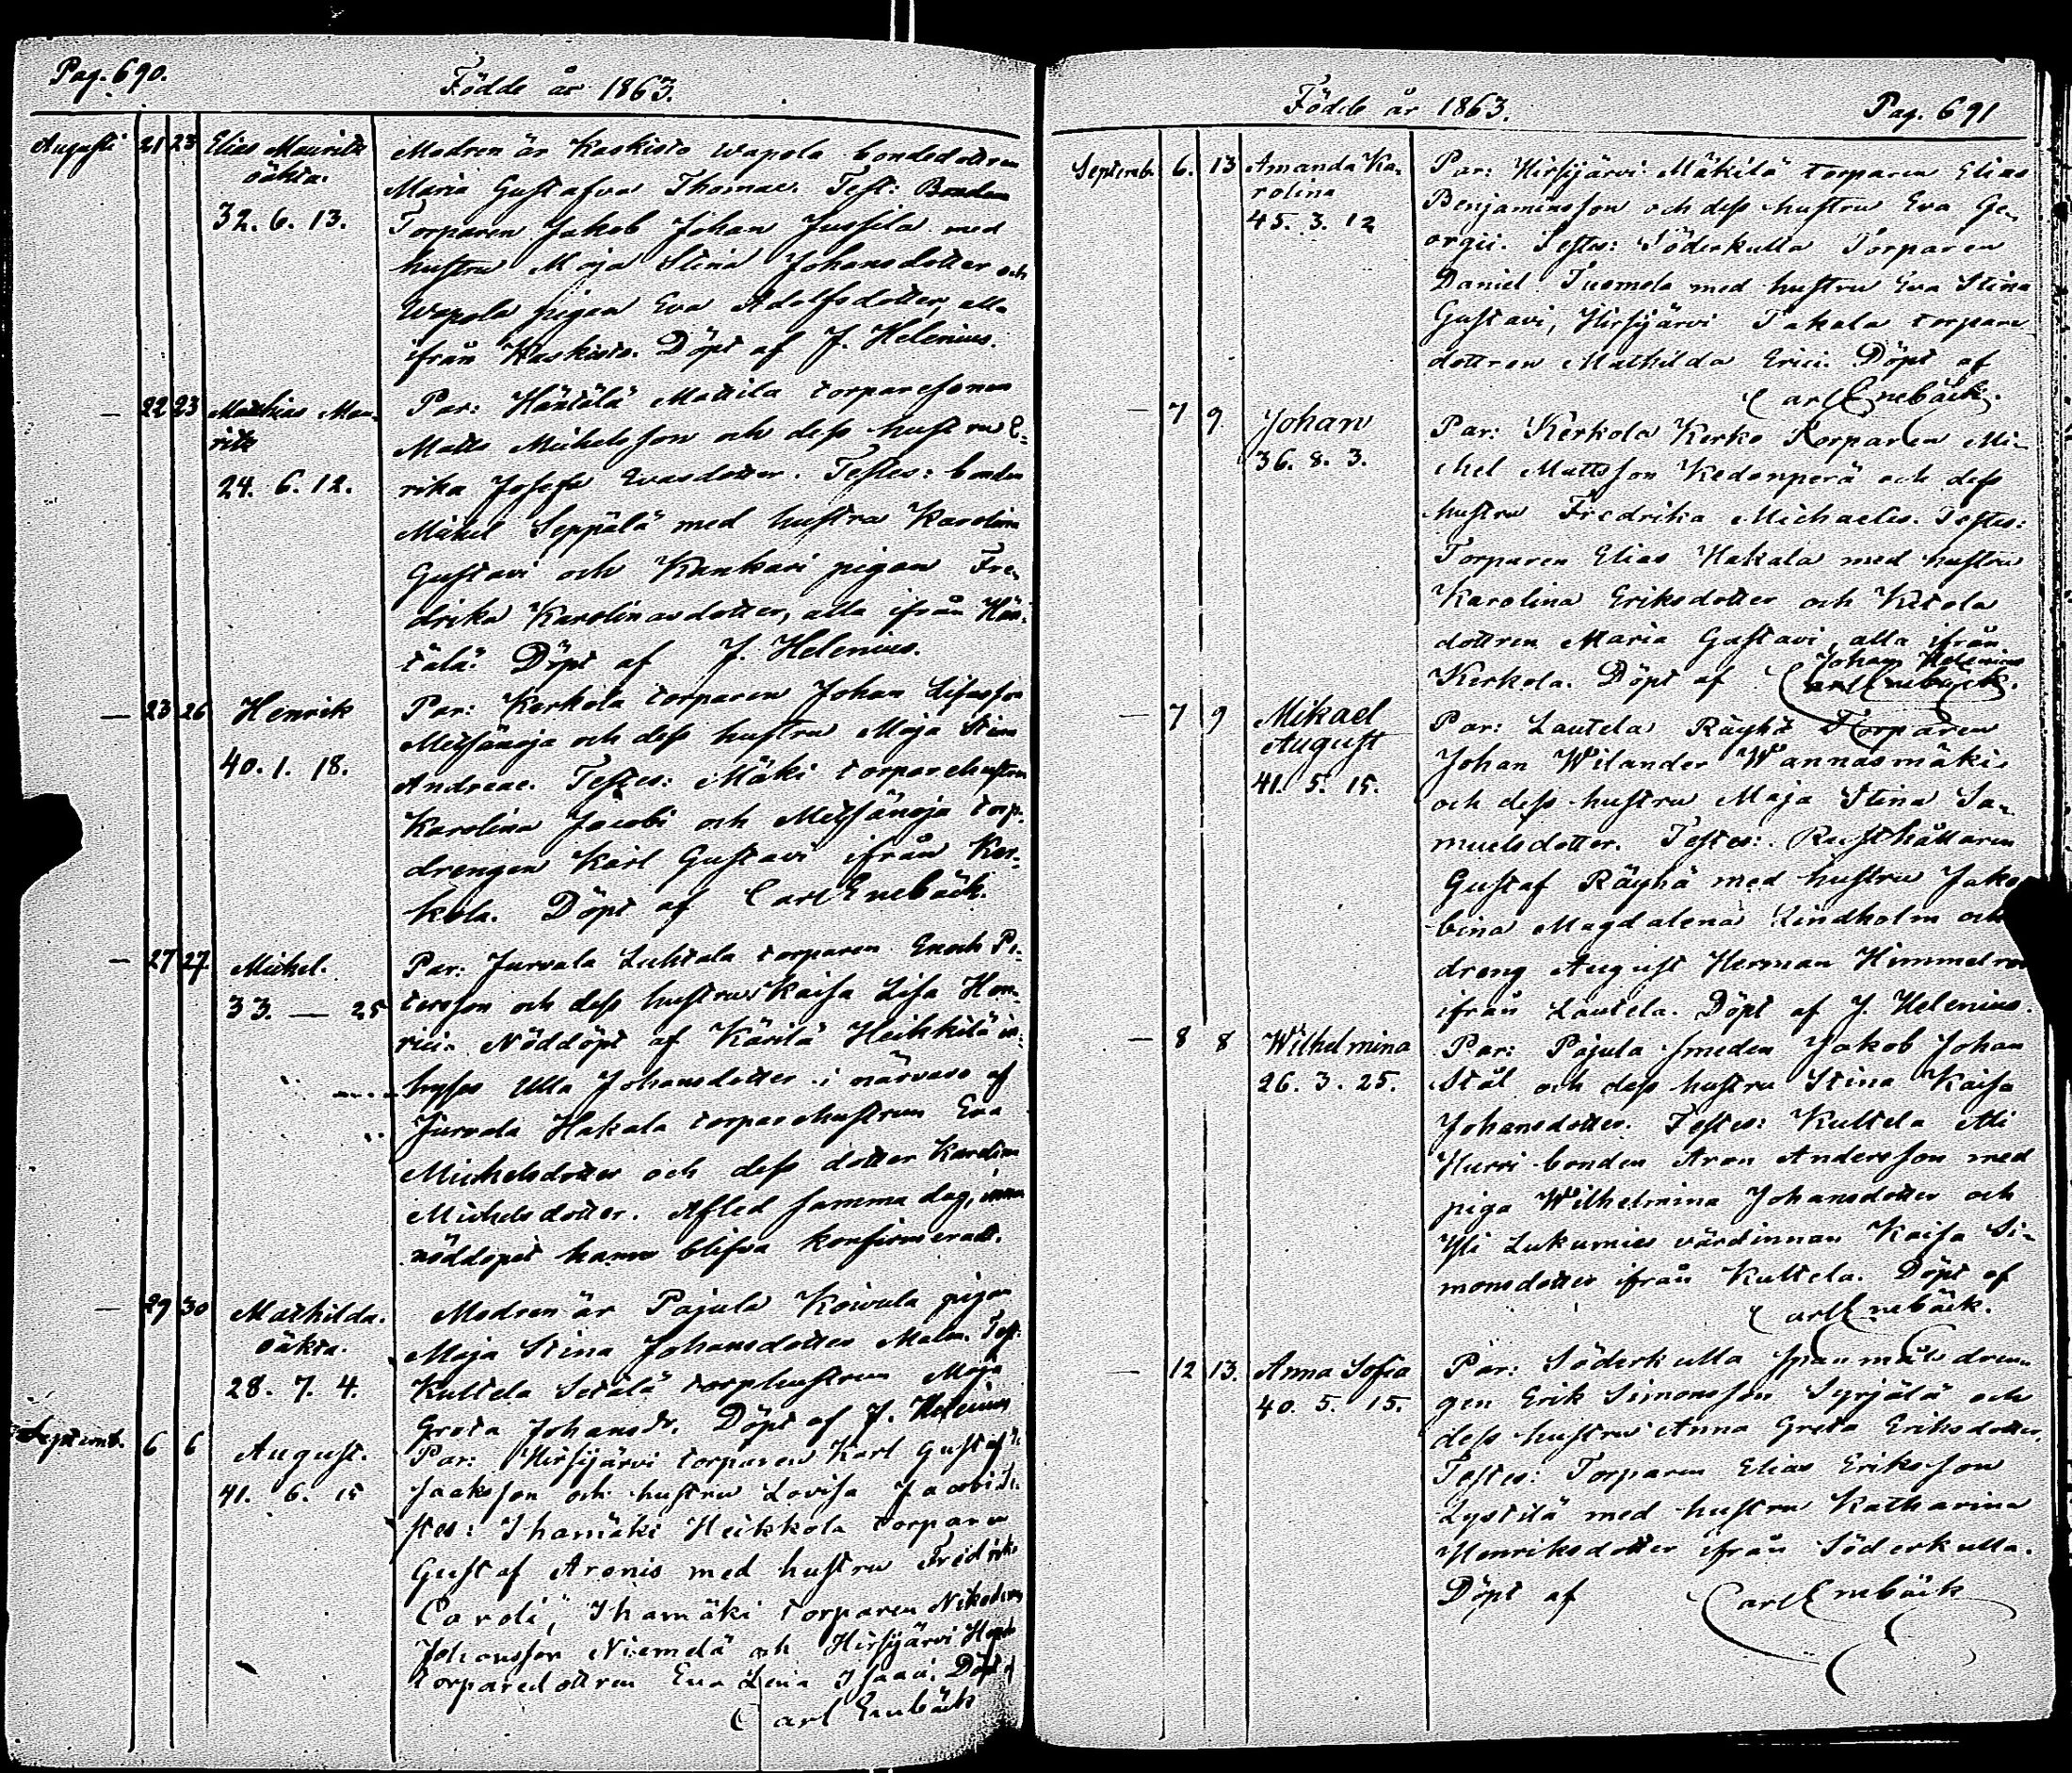 Pag. 690.
Födde år 1863.
Augusti 21 23 Elias Mauritz
oäkta.
32. 6. 13.
Modren är Kaskisto Wapola bondedottren
Maria Gustafva Thomae. Test: Bonden
Torparen Jakob Johan Jussila med
hustru Maja Stina Johansdotter och
Wapola pigan Eva Adolfsdotter, alla
ifrån Kaskisto. Döpt af J. Helenius.
— 22 23 Mathias Mau-
ritz
24. 6. 12.
Par: Häntälä Mattila torparesonen
Matts Michelsson och dess hustru E-
rika Josefa Evasdotter. Testes: bonden
Michel Seppälä med hustru Karolina
Gustavi och Kankari pigan Fre-
drika Karolinasdotter, alla ifrån Hän-
tälä. Döpt af J. Helenius.
— 23 26 Henrik
40. 1. 18.
Par: Kerkola torparen Johan
Metsänoja och dess hustru Maja Stina
Andreae. Testes: Mäki torparehustrun
Karolina Jacobi och Metsänoja torp.
drengen Karl Gustavi ifrån Ker-
kola. Döpt af Carl Enebäck.
— 27 27. Michel.
33. — 25
Par: Jurvala Luhtala torparen Enoch Pe-
tersson och dess hustru Kaisa Lisa Hen-
rici. Nöddöpt af Kärilä Heikkilä in-
hyses Ulla Johansdotter i närvaro af
Jurvala Hakala torparehustrun Eva
Michelsdotter och dess dotter Karolina
Michelsdotter. Afled samma dag, innan
nöddopet hann blifva konfirmeradt.
— 29 30 Mathilda.
oäkta.
28. 7. 4.
Modren är Pajula Koivula pigan
Maja Stina Johansdotter Malm. Test:
Kultela Setälä torphustrun Maja
Greta Johansdr. Döpt af J. Helenius
Septemb. 6 6 August.
41. 6. 15
Par: Hirsijärvi torparen Karl Gustaf
Isaksson och hustru Lovisa Jacobi Te-
stes: Ihamäki Heikkola torparen
Gustaf Aronis med hustru Fredrika
Caroli, Ihamäki torparen Nikodemus
Johansson Niemelä och Hirsijärvi
torparedottren Eva Lena Isaaci. Döpt af
Carl Enebäck
Födde år 1863.
Pag. 691
Septemb. 6. 13 Amanda Ka-
rolina
45. 3. 12
Par: Hirsijärvi Mäkilä torparen Elias
Benjaminsson och dess hustru Eva Ge-
orgii. Testes: Söderkulla Torparen
Daniel Tuomola med hustru Eva Stina
Gustavi, Hirsijärvi Takala torpare
dottren Mathilda Erici. Döpt af
Carl Enebäck.
— 7 9 Johan
36. 8. 3.
Par: Kerkola Kerko Torparen Mi-
chel Mattsson Kedonperä och dess
hustru Fredrika Michaelis. Testes:
Torparen Elias Hakala med hustru
Karolina Eriksdotter och Ketola
dottren Maria Gustavi, alla ifrån
Johan Helenius
Kerkola. Döpt af Carl Enebäck.
— 7 9 Mikael
August
41. 5. 15.
Par: Lautela Räyhä Torparen
Johan Wilander Wannasmäki
och dess hustru Maja Stina Sa-
muelsdotter. Testes: Rusthållaren
Gustaf Räyhä med hustru Jako
bina Magdalena Lindholm och
dreng August Herman Himmelroos
ifrån Lautela. Döpt af J. Helenius.
— 8 8 Wilhelmina
26. 3. 25.
Par: Pajula smeden Jakob Johan
Stål och dess hustru Stina Kaisa
Johansdotter. Testes: Kultela Ali
Hurri bonden Aron Andersson med
piga Wilhelmina Johansdotter och
Yli Lukumies värdinnan Kaisa Si-
monsdotter ifrån Kultela. Döpt af
Carl Enebäck.
— 12 13. Anna Sofia
40. 5. 15.
Par: Söderkulla spanmåls dren-
gen Erik Simonsson Syrjälä och
dess hustru Anna Greta Eriksdotter.
Testes: Torparen Elias Eriksson
Lystilä med hustru Katharina
Henriksdotter ifrån Söderkulla.
Döpt af Carl Enebäck